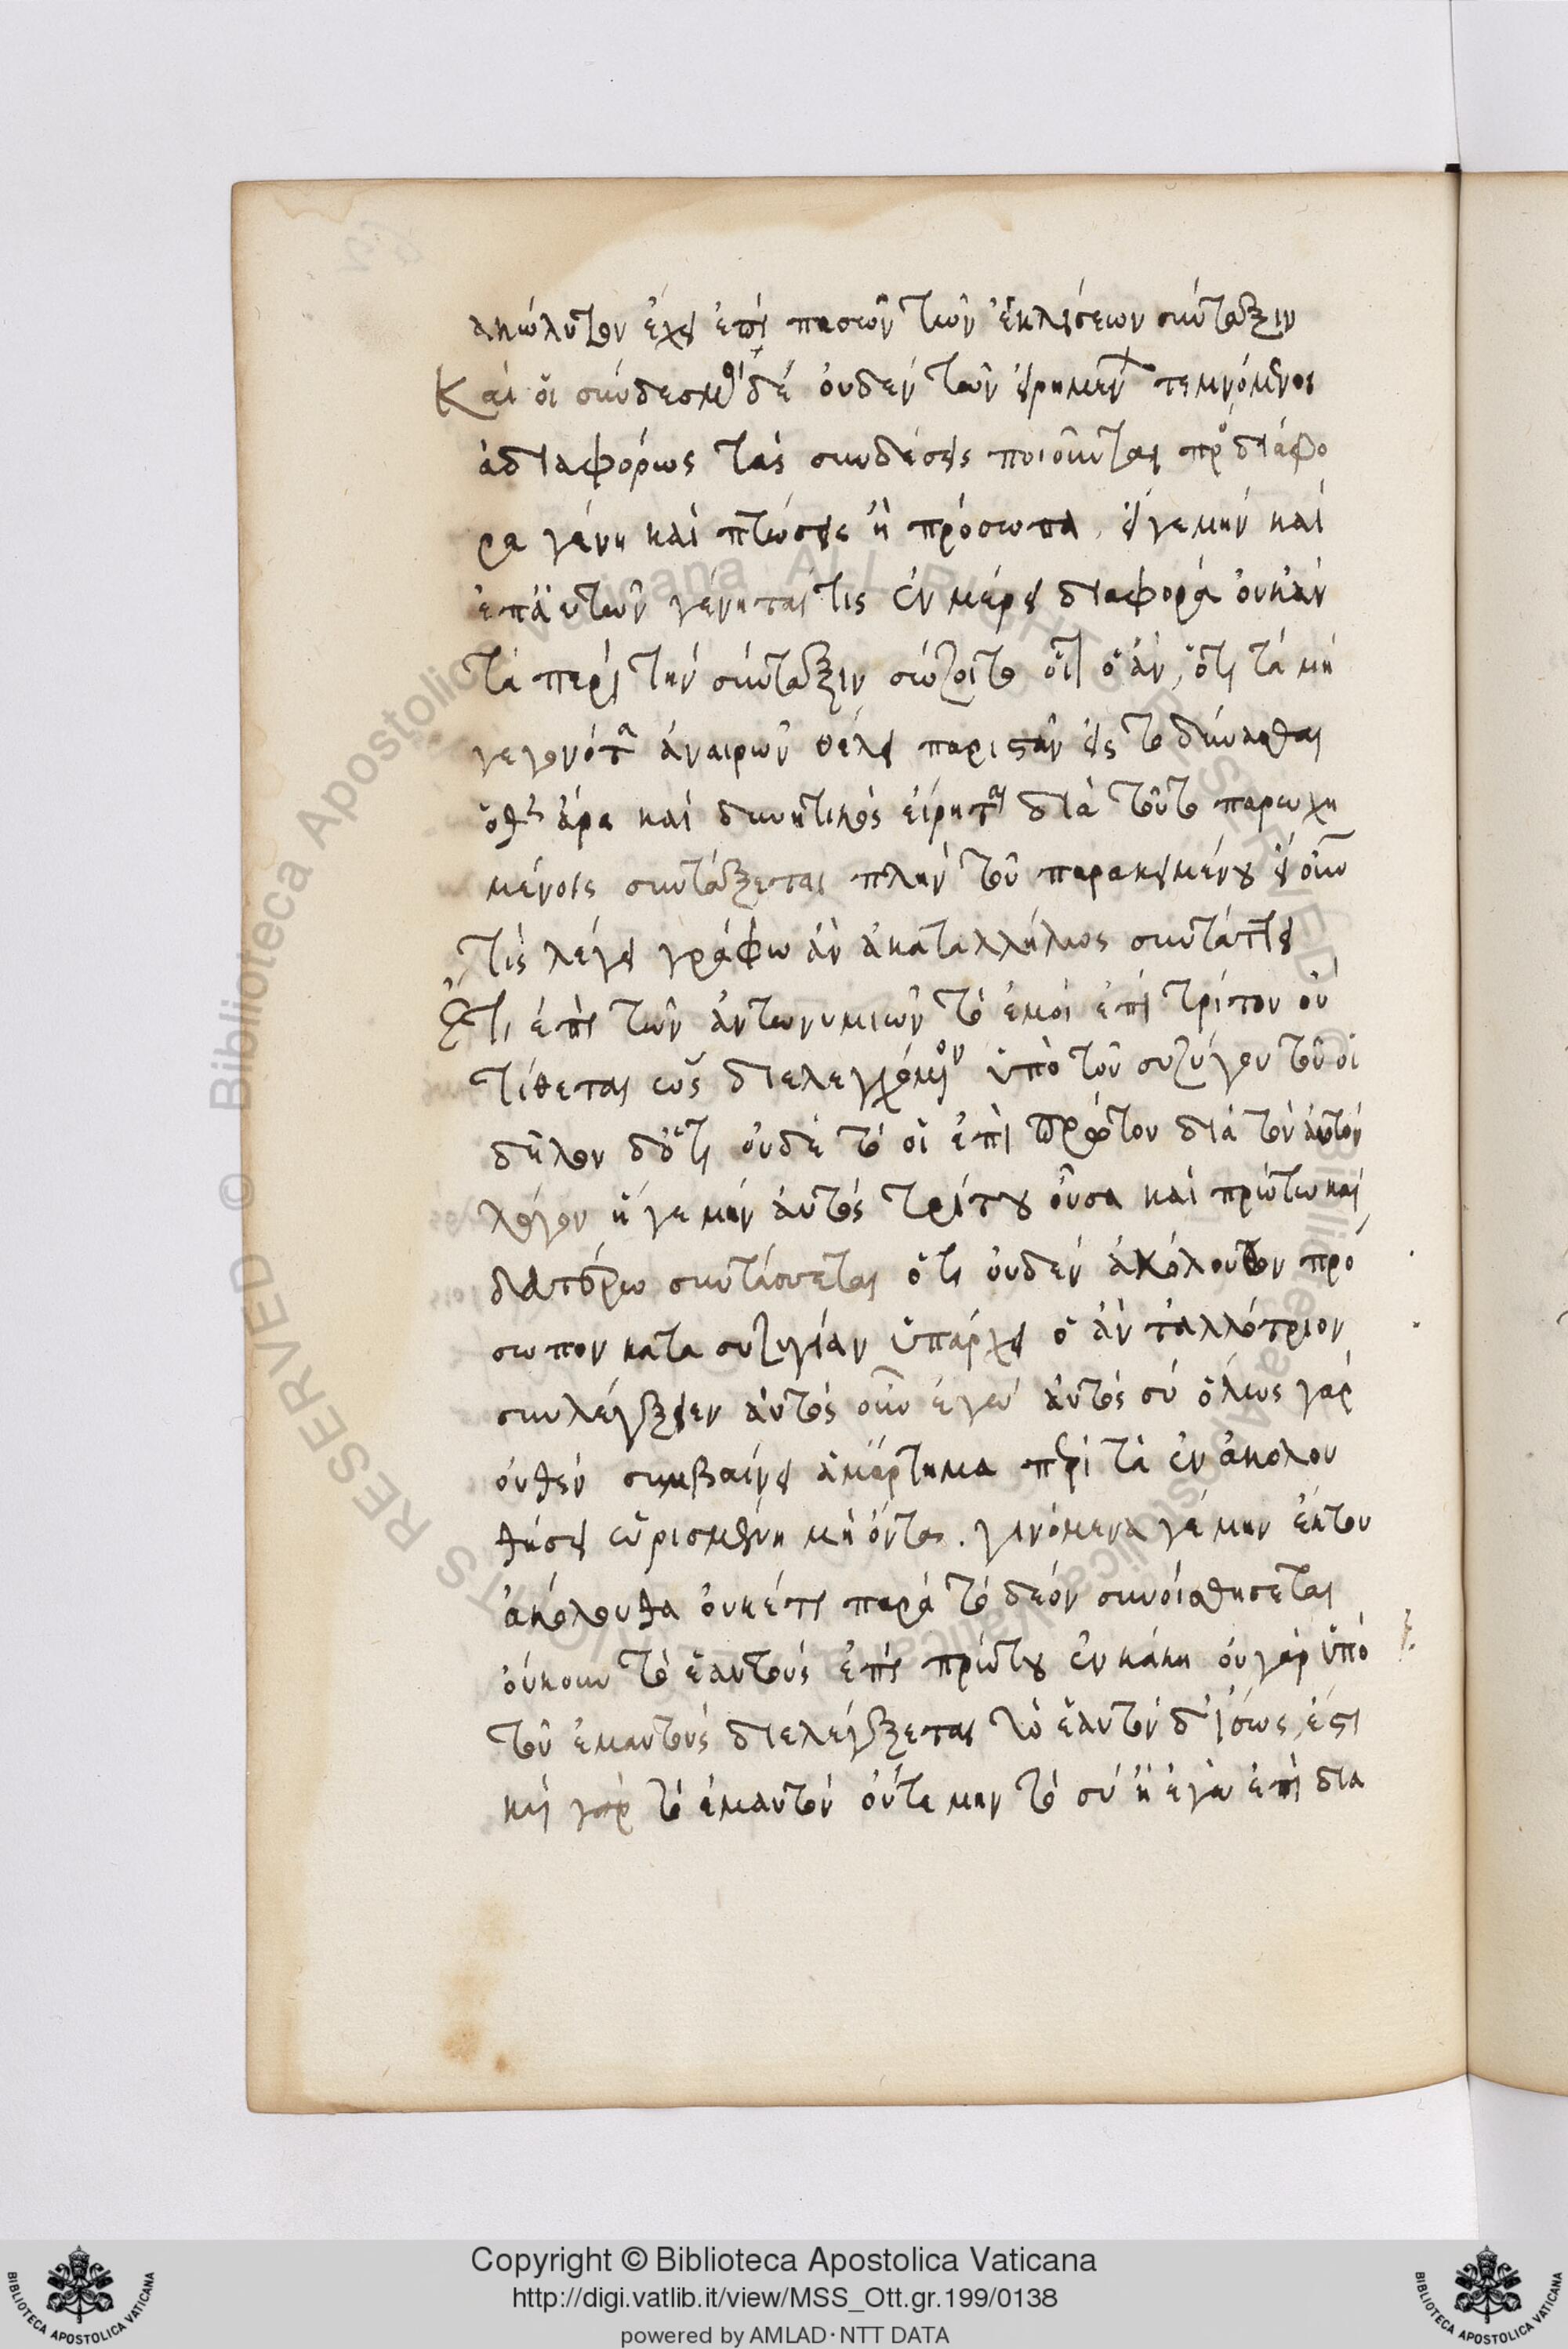 ακώλυτον ἔχει ἐπὶ πασῶν τῶν ἐκλήσεων σύνταξιν
Καὶ οἱ σύνδεσμοι δὲ οὐδὲν τῶν εἰρημένων τεμνόμενοι
ἀδιαφόρως τὰς συνδέσεις ποιοῦνται πρὸς διάφο
ρα γένη καὶ πτώσεις ἢ πρόσωπα, εἴγε μὴν καὶ
ἐπ' αὐτῶν γένηταί τις ἐν μέρει διαφορὰ οὐκ ἂν
τὰ περὶ τὴν σύνταξιν σώζοιτο ὅτι ὁ ἄν, ὅτι τὰ μὴ
γεγονότα ἀναιρῶν θέλει παριστᾶν εἰς τὸ δύνασθαι
ὅθεν ἄρα καὶ δυνητικὸς εἴρηται διὰ τοῦτο παρωχη
μένοις συντάξεται πλὴν τοῦ παρακειμένου εἰ οὖν
τὶς λέγει γράφω ἂν ἀκαταλλήλως συντάττει
Ἔτι ἐπὶ τῶν ἀντωνυμιῶν τὸ ἐμοὶ ἐπὶ τρίτον οὐ
τίθεται ὡς διελεγχόμενον ὑπὸ τοῦ συζύγου τοῦ οἷ
δῆλον δ' ὅτι οὐδὲ τὸ οἷ ἐπὶ πρῶτον διὰ τὸν αὐτὸν
λόγον ἥ γε μὴν αὐτός τρίτου οὖσα καὶ πρώτω καὶ
δευτέρω συντάσσεται ὅτι οὐδὲν ἀκόλουθον πρό
σωπον κατὰ συζυγίαν ὑπάρχει ὃ ἂν τἀλλότριον
συνλέγξειεν αὐτὸς οὖν ἐγώ αὐτὸς σύ ὅλως γὰρ
οὐθὲν συμβαίνει ἁμάρτημα περὶ τὰ ἐν ἀκολου
θήσει εὑρισμένη μὴ ὄντα. γινόμενα γε μὴν ἐκ τοῦ
ἀκόλουθα οὐκέτι παρὰ τὸ δέον συνοισθήσεται
οὔκουν τὸ ἑαυτοὺς ἐπὶ πρώτου ἐν κάκη οὐ γὰρ ὑπὸ
τοῦ ἐμαυτοὺς διελέγξεται τὸ ἑαυτὸν δ' ἴσως, ἔστι
καὶ γὰρ τὸ ἐμαυτὸν οὔτε μὴν τὸ σύ ἢ ἐγώ ἐπὶ δια
Copyright © Biblioteca Apostolica Vaticana
http://digi.vatlib.it/view/MSS_Ott.gr.199/0138
powered by AMLAD·NTT DATA